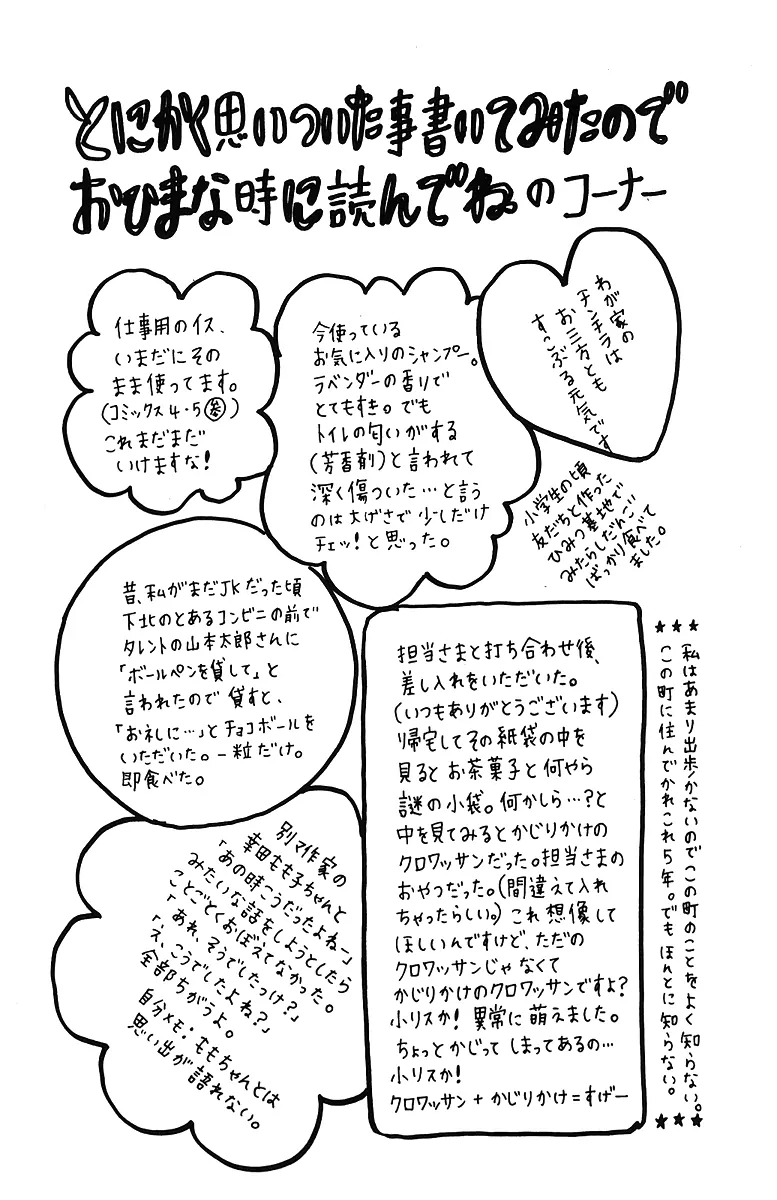 とにかく思いついた事書いてみたので
おひまな時に読んでね。のコーナー
仕事用のイス、
いまだにその
まま使ってます。
(コミックス4・5参)
これまだまだ
いけますな!
今使っている
お気に入りのシャンプー。
ラベンダーの香りで
とてもすき。でも
トイレの匂いがする
(芳香剤)と言われて
深く傷ついた…と言う
のは大げさで少しだけ
チェッ!と思った。
わが家の
チンチラは
お三方とも
すこぶる元気です
小学生の頃
友だちと作った
ひみつ基地で
みたらしだんご
ばっかり食べて
ました。
昔、私がまだJKだった頃
下北のとあるコンビニの前で
タレントの山本太郎さんに
「ボールペンを貸して」と
言われたので貸すと、
「お礼しに…」とチョコボールを
いただいた。一粒だけ。
即食べた。
担当さまと打ち合わせ後、
差し入れをいただいた。
(いつもありがとうございます)
帰宅してその紙袋の中を
見るとお茶菓子と何やら
謎の小袋。何かしら…?と
中を見てみるとかじりかけの
クロワッサンだった。担当さまの
おやつだった。(間違えて入れ
ちゃったらしい。)これ想像して
ほしいんですけど、ただの
クロワッサンじゃなくて
かじりかけのクロワッサンですよ?
小リスか!異常に萌えました。
ちょっとかじってしまってあるの…
小リスか!
クロワッサン+かじりかけ=すげー
★★★
私はあまり出歩かないのでこの町のことをよく知らない。
この町に住んでかれこれ5年。でもほんとに知らない。
★★★
別マ作家の
幸田もも子ちゃんと
「あの時こうだったよねー」
みたいな話をしようとしたら
ことごとくおぼえてなかった。
「あれ、そうでしたっけ?」
「え、こうでしたよね?」
全部ちがうよ。
自分メモ:ももちゃんとは
思い出が語れない。